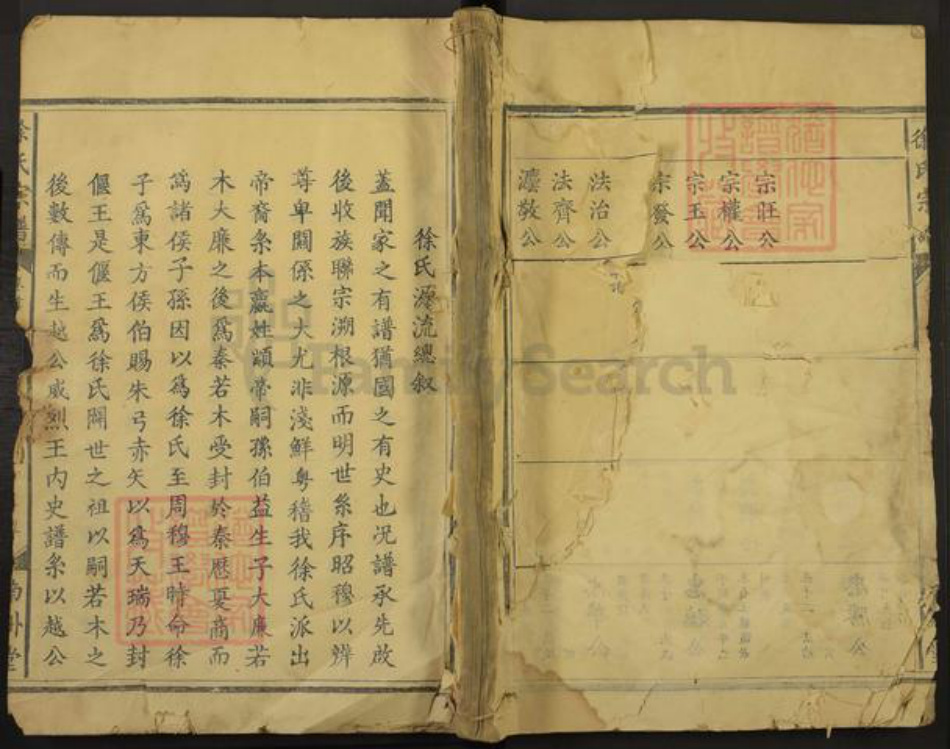 徐氏宗
宗旺公
宗權公
宗玉公
宗發公
法治公
法齊公
濅敬公
徐氏源流總叙
蓋聞家之有譜猶國之有史也况譜承先啟
後收族聯宗溯根源而明世系序昭穆以辨
尊卑關係之大尤非淺鮮粵稽我徐氏派出
帝裔系本嬴姓顓帝嗣孫伯益生子大廉若
木大廉之後爲秦若木受封於秦歷夏商而
爲諸侯子孫因以爲徐氏至周穆王時命徐
子爲東方侯伯賜朱弓赤矢以爲天瑞乃封
偃王是偃王爲徐氏開世之祖以嗣若木之
後數傳而生越公威烈王内史譜系以越公
徐氏宗譜
南州堂
FamilySearch